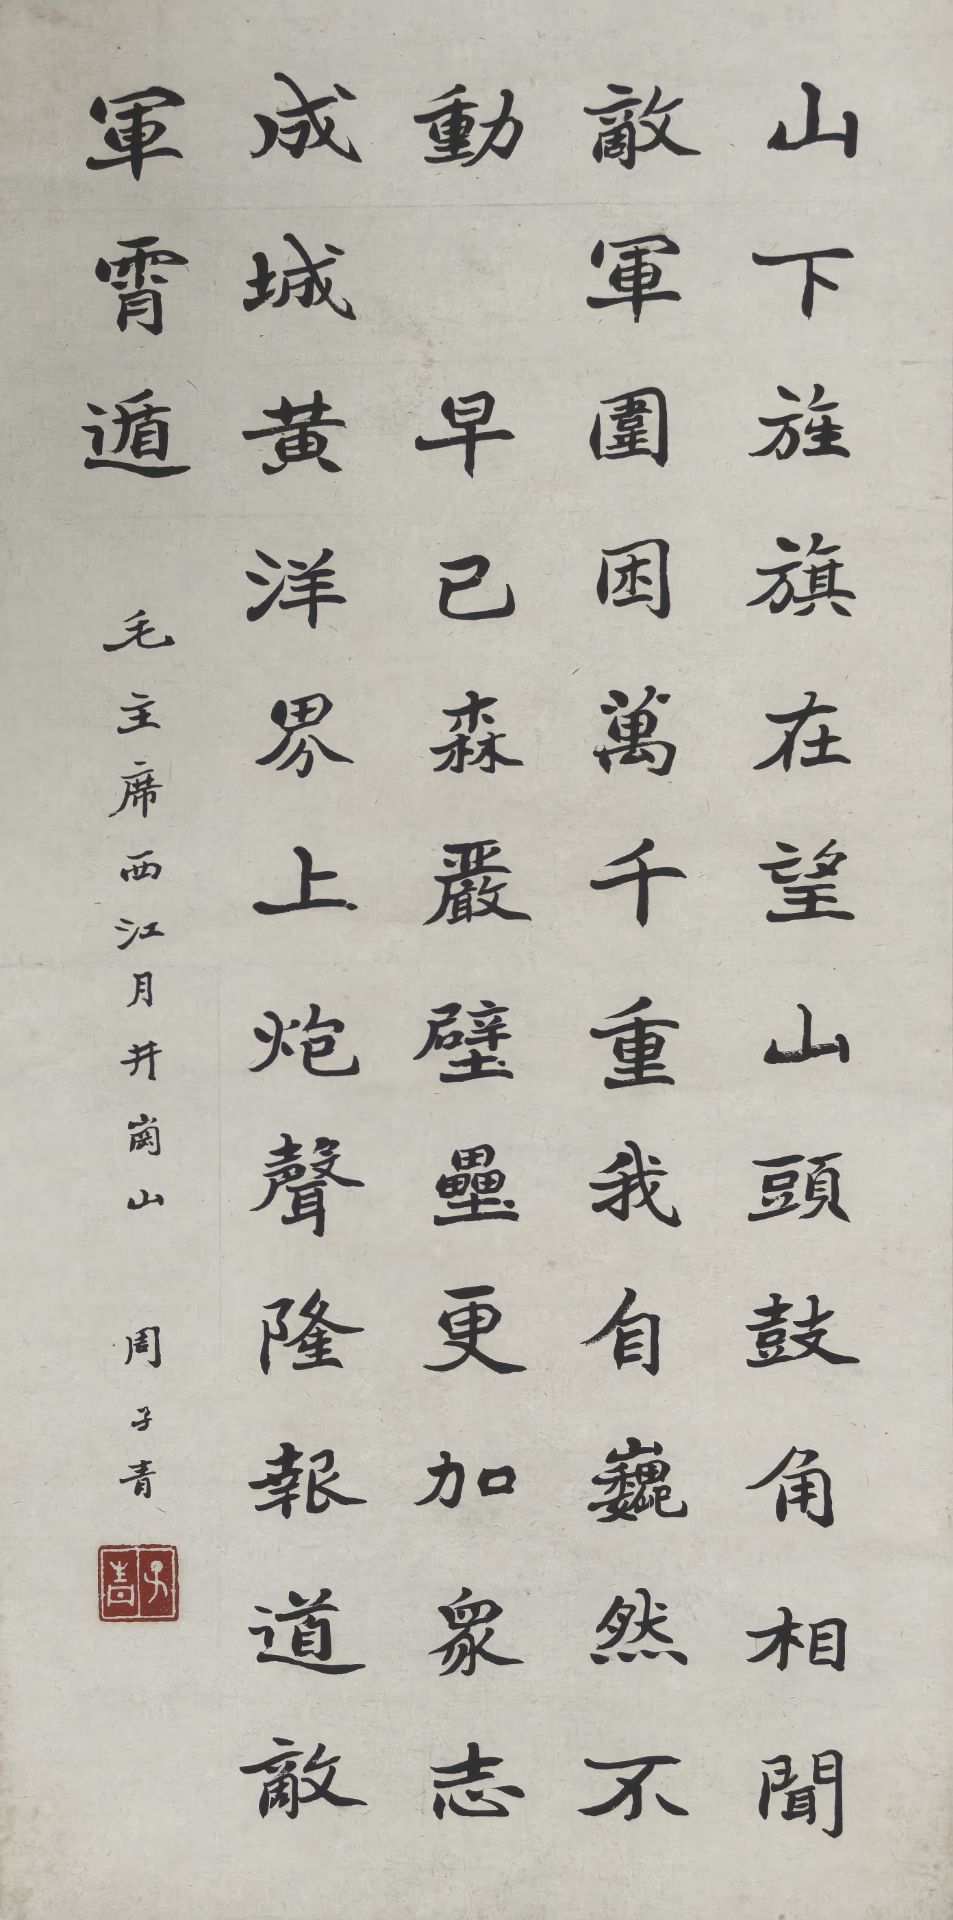 山下旌旗在望山頭鼓角相聞
敵軍圍困萬千重我自巍然不
動 早已森嚴壁壘更加眾志
成城黄洋界上炮聲隆報道敵
軍霄遁
毛主席西江月井崗山 周子青
子青